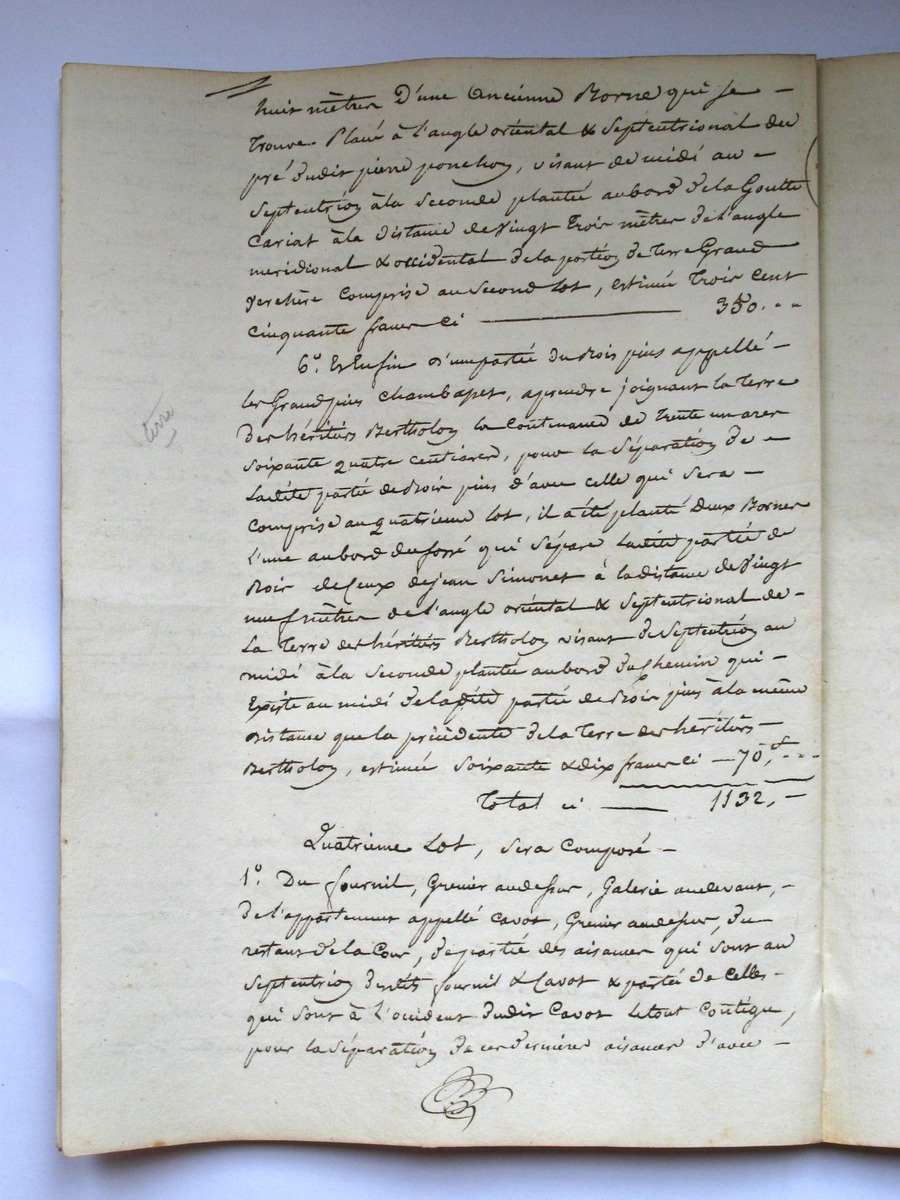 huit mètres D'une Ancienne Borne qui se —
trouve Placé à l'angle oriental & Septentrional du
pré dudit pierre ponchon, visant de midi au —
Septentrion à la Seconde plantée au bord de la Goutte
Cariat à la distance de Vingt trois mètres de l'angle
méridional & occidental de la portion de terre Grand
comprise au Second Lot, estimé trois cent
cinquante francs ci — 350. ..
6.° Et Enfin d'une partie du Bois pins appellé —
les Grand pins Chambapet, aprendre joignant la terre
des héritiers Bertholon la Contenance de trente un ares
Soixante quatre centiares, pour la Séparation de —
Ladite partie de Bois pins d'avec celle qui Sera —
Comprise au quatrieme Lot, il a été planté deux Bornes
L'une au bord du fossé qui Sépare Ladite partie de
Bois de Ceux de jean Simonet à la distance de Vingt
neuf mètres de l'angle oriental & Septentrional de —
La terre des héritiers Bertholon visant de Septentrion au
midi à la Seconde plantée au bord du chemin qui —
Existe au midi de ladite partie de Bois pins à la même
distance que la précédente de la terre des héritiers —
Bertholon, estimée Soixante & dix francs ci — 70,f - - -
terre
Total ci — 1132, —
Quatrieme Lot, Sera Composé —
1.° Du fournil, Grenier au dessur, Galerie au devant, —
de l'appartement appellé Cavot, Grenier au dessur, du
restant de la Cour, de partie des aisances qui sont au
Septentrion desdits fournil & Cavot & partie de Celles —
qui sont à l'occident dudit Cavot le tout Contégu,
pour la Séparation de ces dernières aisances d'avec —